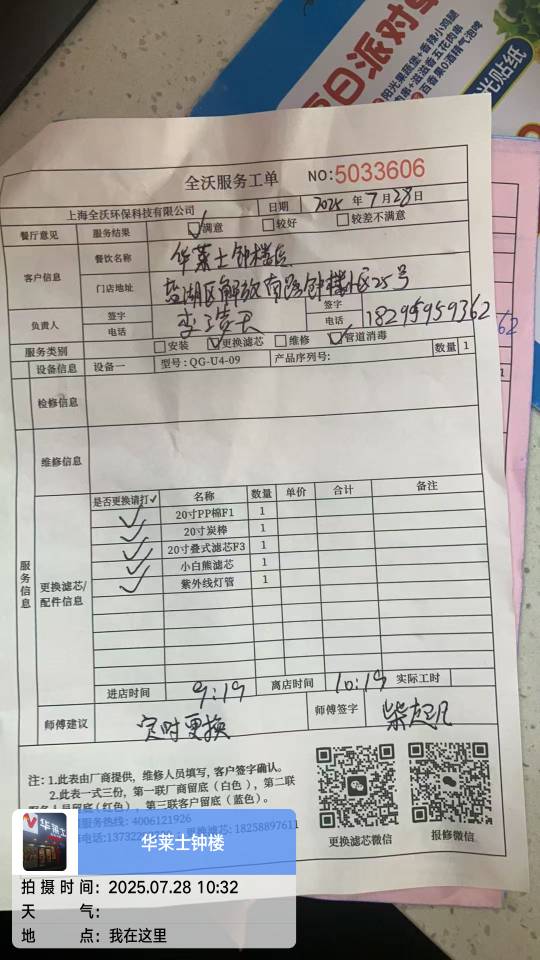 百日派对
阳光果蔬堡+香辣小鸡腿
百香果0酒精气泡啤
光贴纸
全沃服务工单 NO:5033606
上海全沃环保科技有限公司 日期 2025 年 7 月 28 日
餐厅意见 服务结果 满意 较好 较差不满意
客户信息 餐饮名称 华莱士钟楼店
门店地址 盐湖区解放南路钟楼小区25号
负责人 签字 签字
电话 电话 18295959362
服务类别 安装 更换滤芯 维修 管道消毒
设备信息 设备一 型号:QG-U4-09 产品序列号: 数量 1
检修信息
维修信息
服务信息
更换滤芯/配件信息
是否更换请打✓ 名称 数量 单价 合计 备注
✓ 20寸PP棉F1 1
✓ 20寸炭棒 1
✓ 20寸叠式滤芯F3 1
✓ 小白熊滤芯 1
✓ 紫外线灯管 1
进店时间 9:19 离店时间 10:19 实际工时
师傅建议 定时更换 师傅签字 柴起凡
注:1.此表由厂商提供,维修人员填写,客户签字确认。
2.此表一式三份,第一联厂商留底(白色),第二联
服务人员留底(红色),第三联客户留底(蓝色)。
服务热线:4006121926
电话:13732 更换滤芯:18258897611
更换滤芯微信 报修微信
62
华莱士
华莱士钟楼
拍摄时间:2025.07.28 10:32
天气:
地点:我在这里